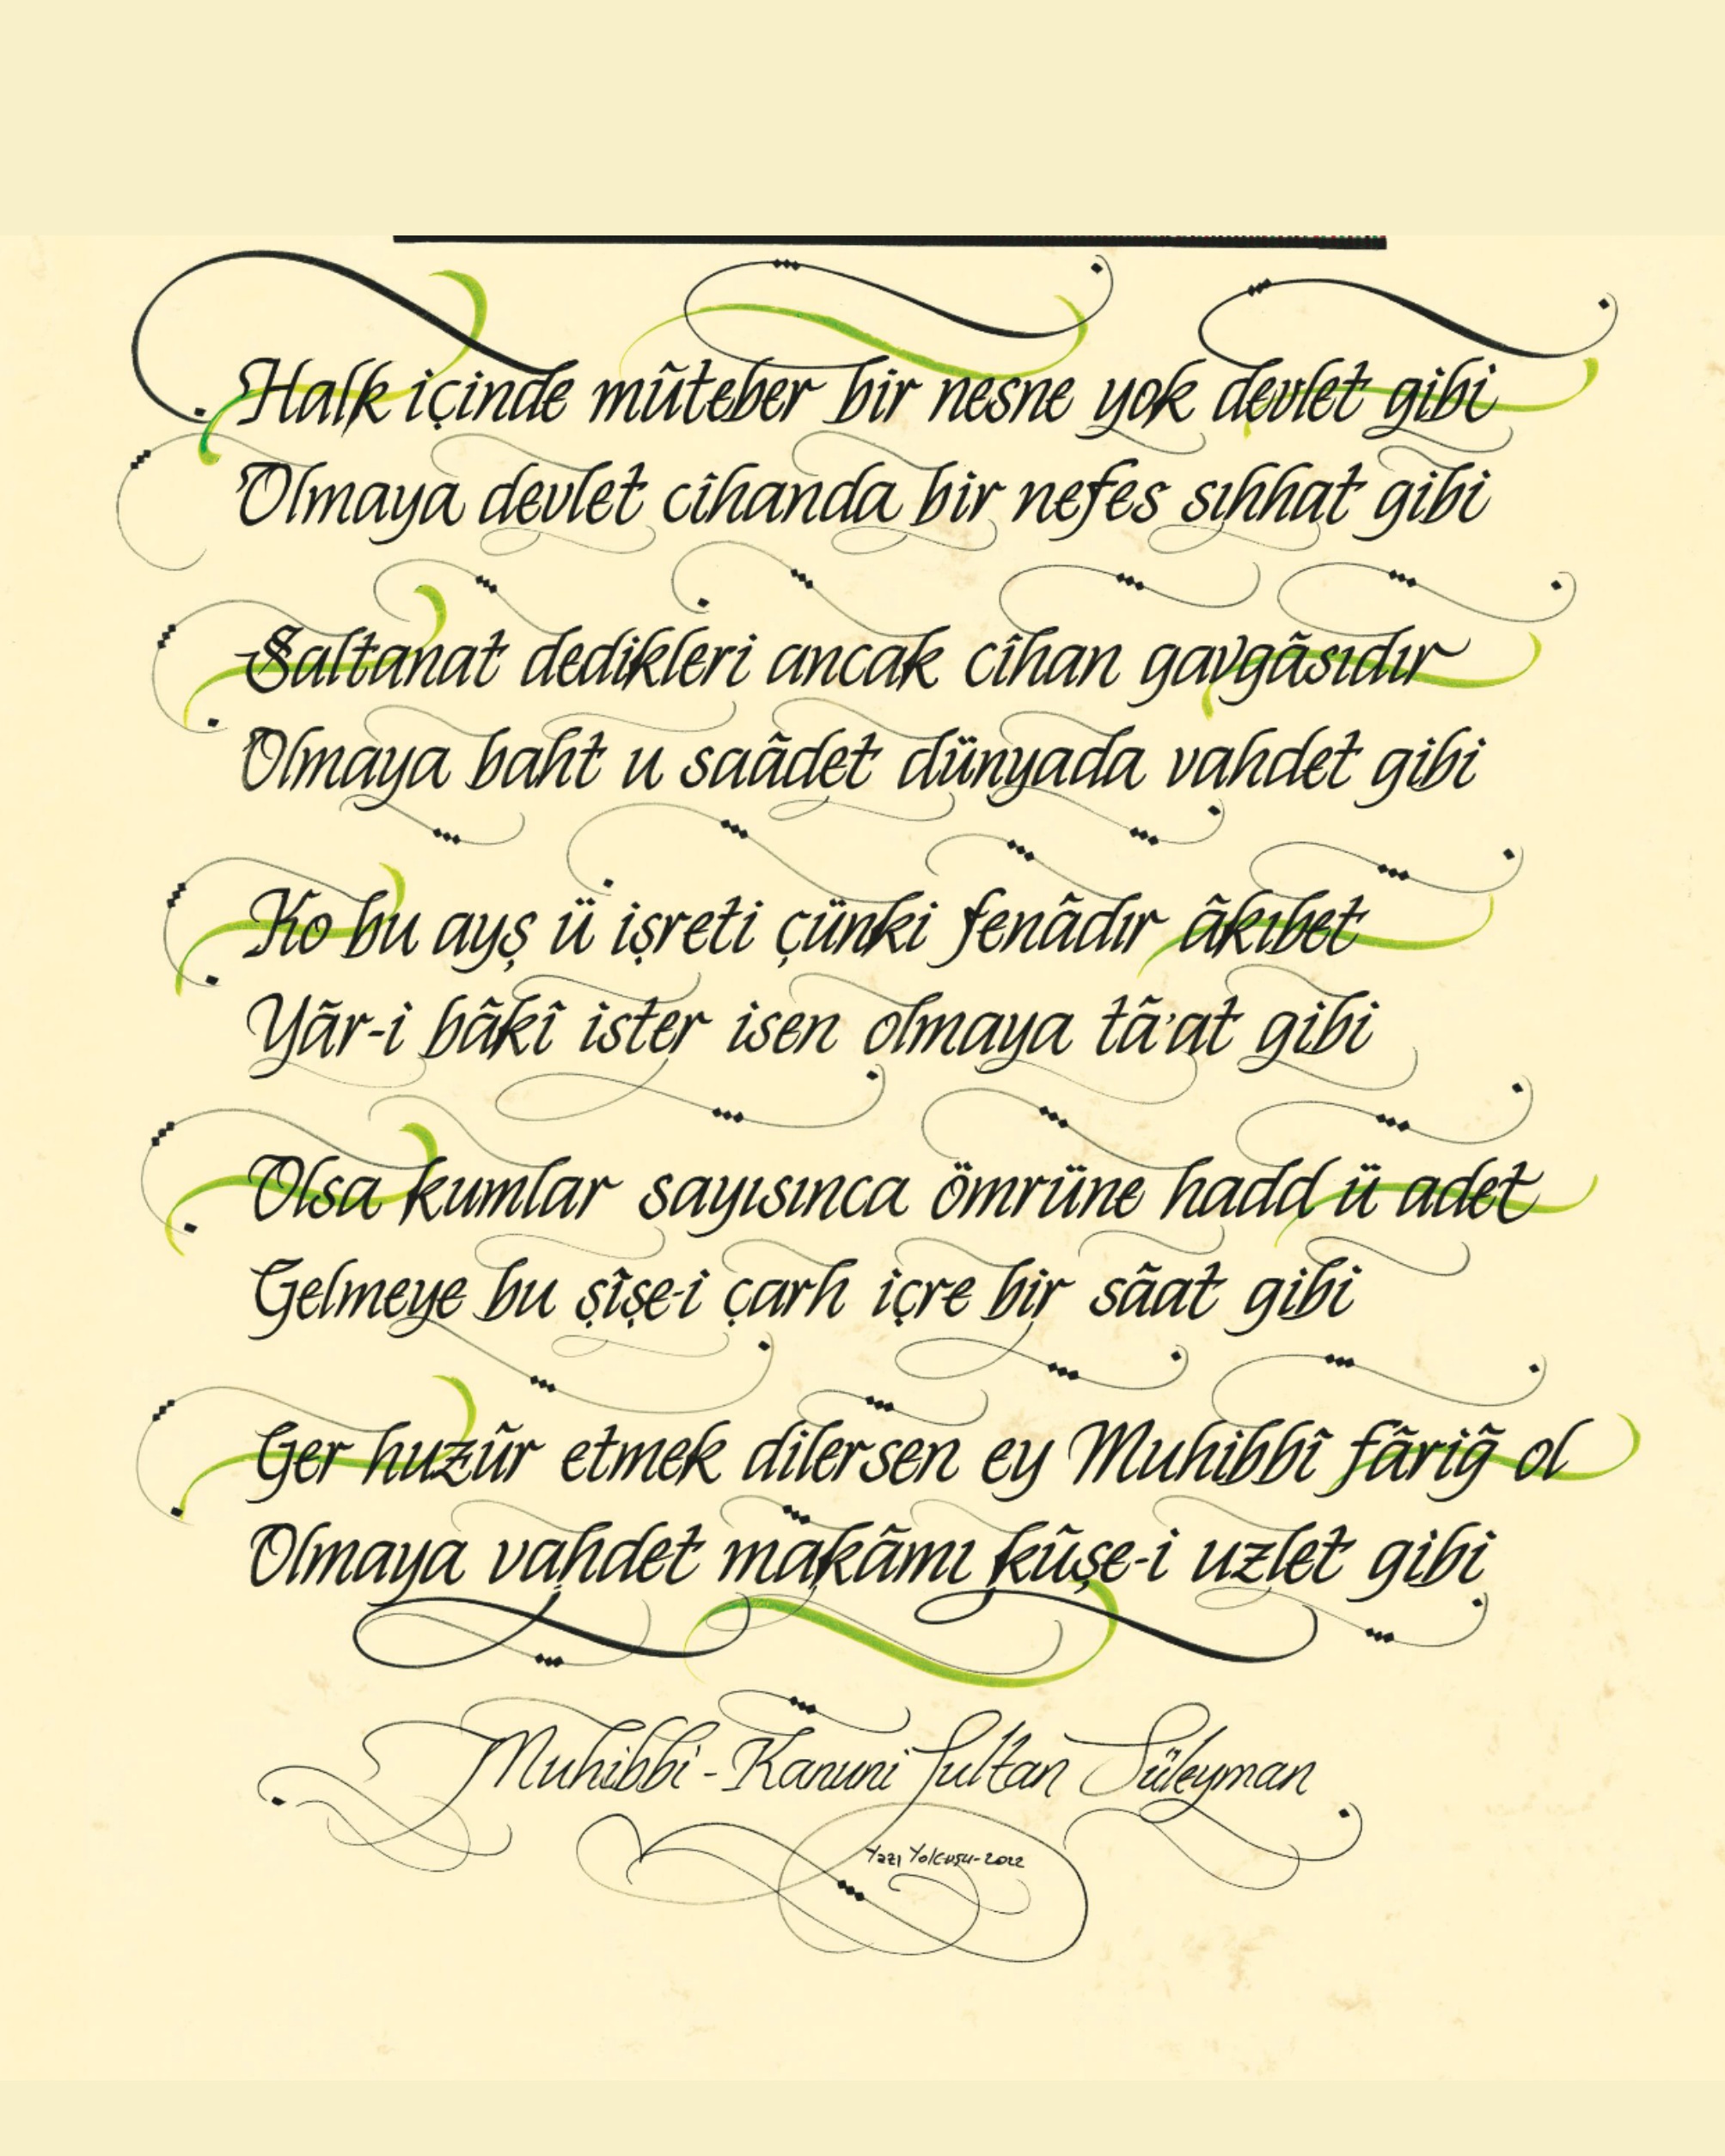 Halk içinde mûteber bir nesne yok devlet gibi
Olmaya devlet cîhanda bir nefes sıhhat gibi
Saltanat dedikleri ancak cîhan gavgãsıdır
Olmaya baht u saãdet dünyada vahdet gibi
Ko bu ayş ü işreti çünki fenâdır âkıbet
Yãr-i bâkî ister isen olmaya tã'at gibi
Olsa kumlar sayısınca ömrüne hadd ü adet
Gelmeye bu şîşe-i çarh içre bir sãat gibi
Ger huzûr etmek dilersen ey Muhibbî fãriğ ol
Olmaya vahdet makãmı kûşe-i uzlet gibi
Muhibbi - Kanuni Sultan Süleyman
Yazı Yolcusu-2022